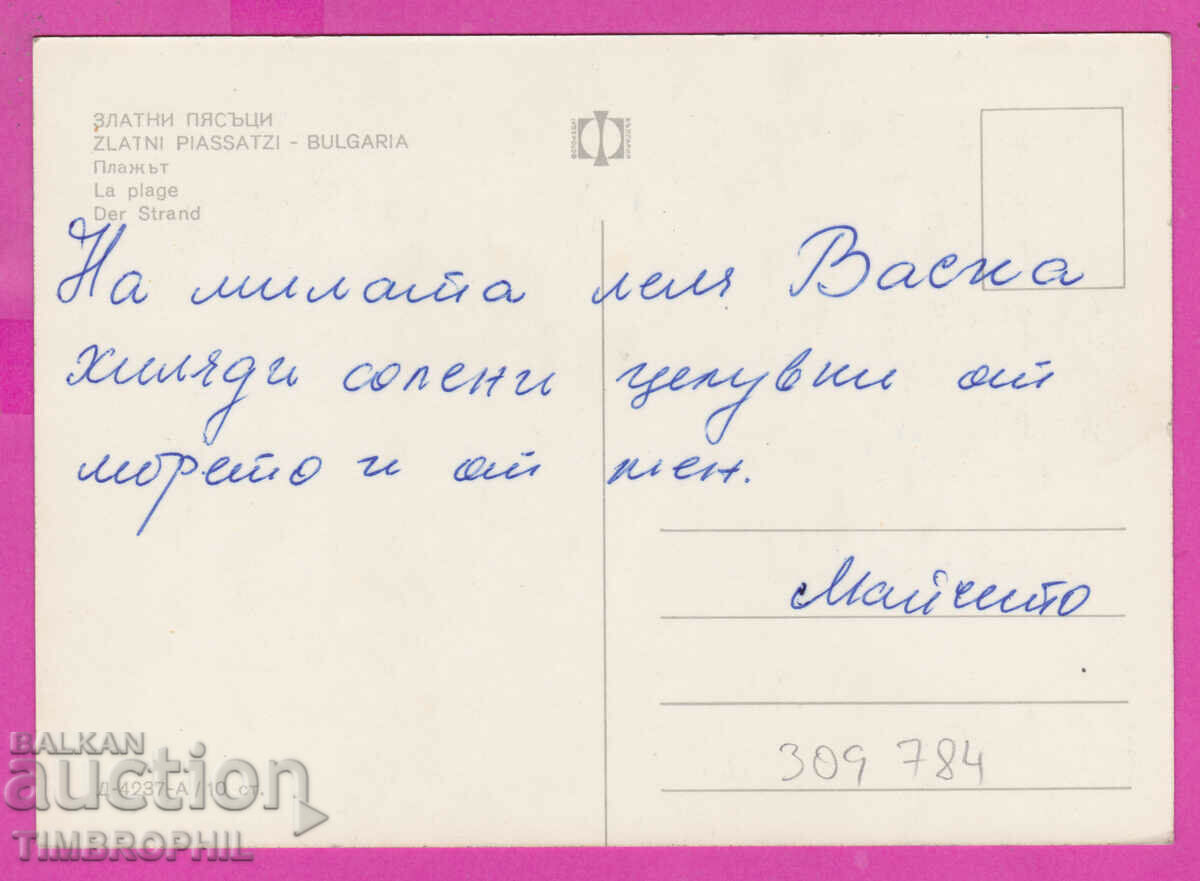 ЗЛАТНИ ПЯСЪЦИ
ZLATNI PIASSATZI - BULGARIA
Плажът
La plage
Der Strand
На милата леля Васка
хиляди солени целувки от
морето и от мен.
Майчето
309 784
Д-4237-А / 10 ст.
BALKAN
auction
TIMBROPHIL